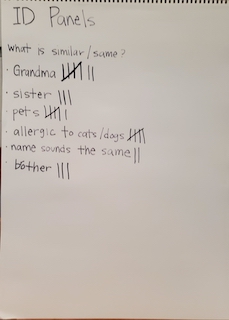 ID Panels
What is similar/same?
· Grandma 卌 ||
· sister |||
· pets 卌 |
· allergic to cats/dogs 卌
· name sounds the same ||
· bother |||